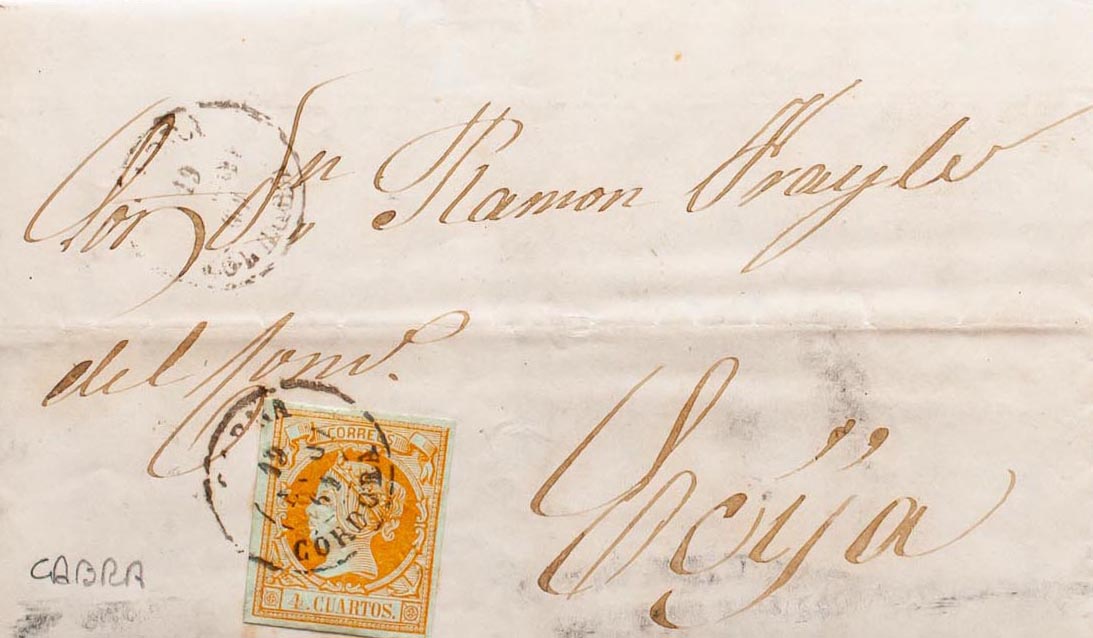 Sor Dn Ramon Frayle
del Comº.
Ecija
CORREOS
19
CORDOBA
4. CUARTOS.
CABRA